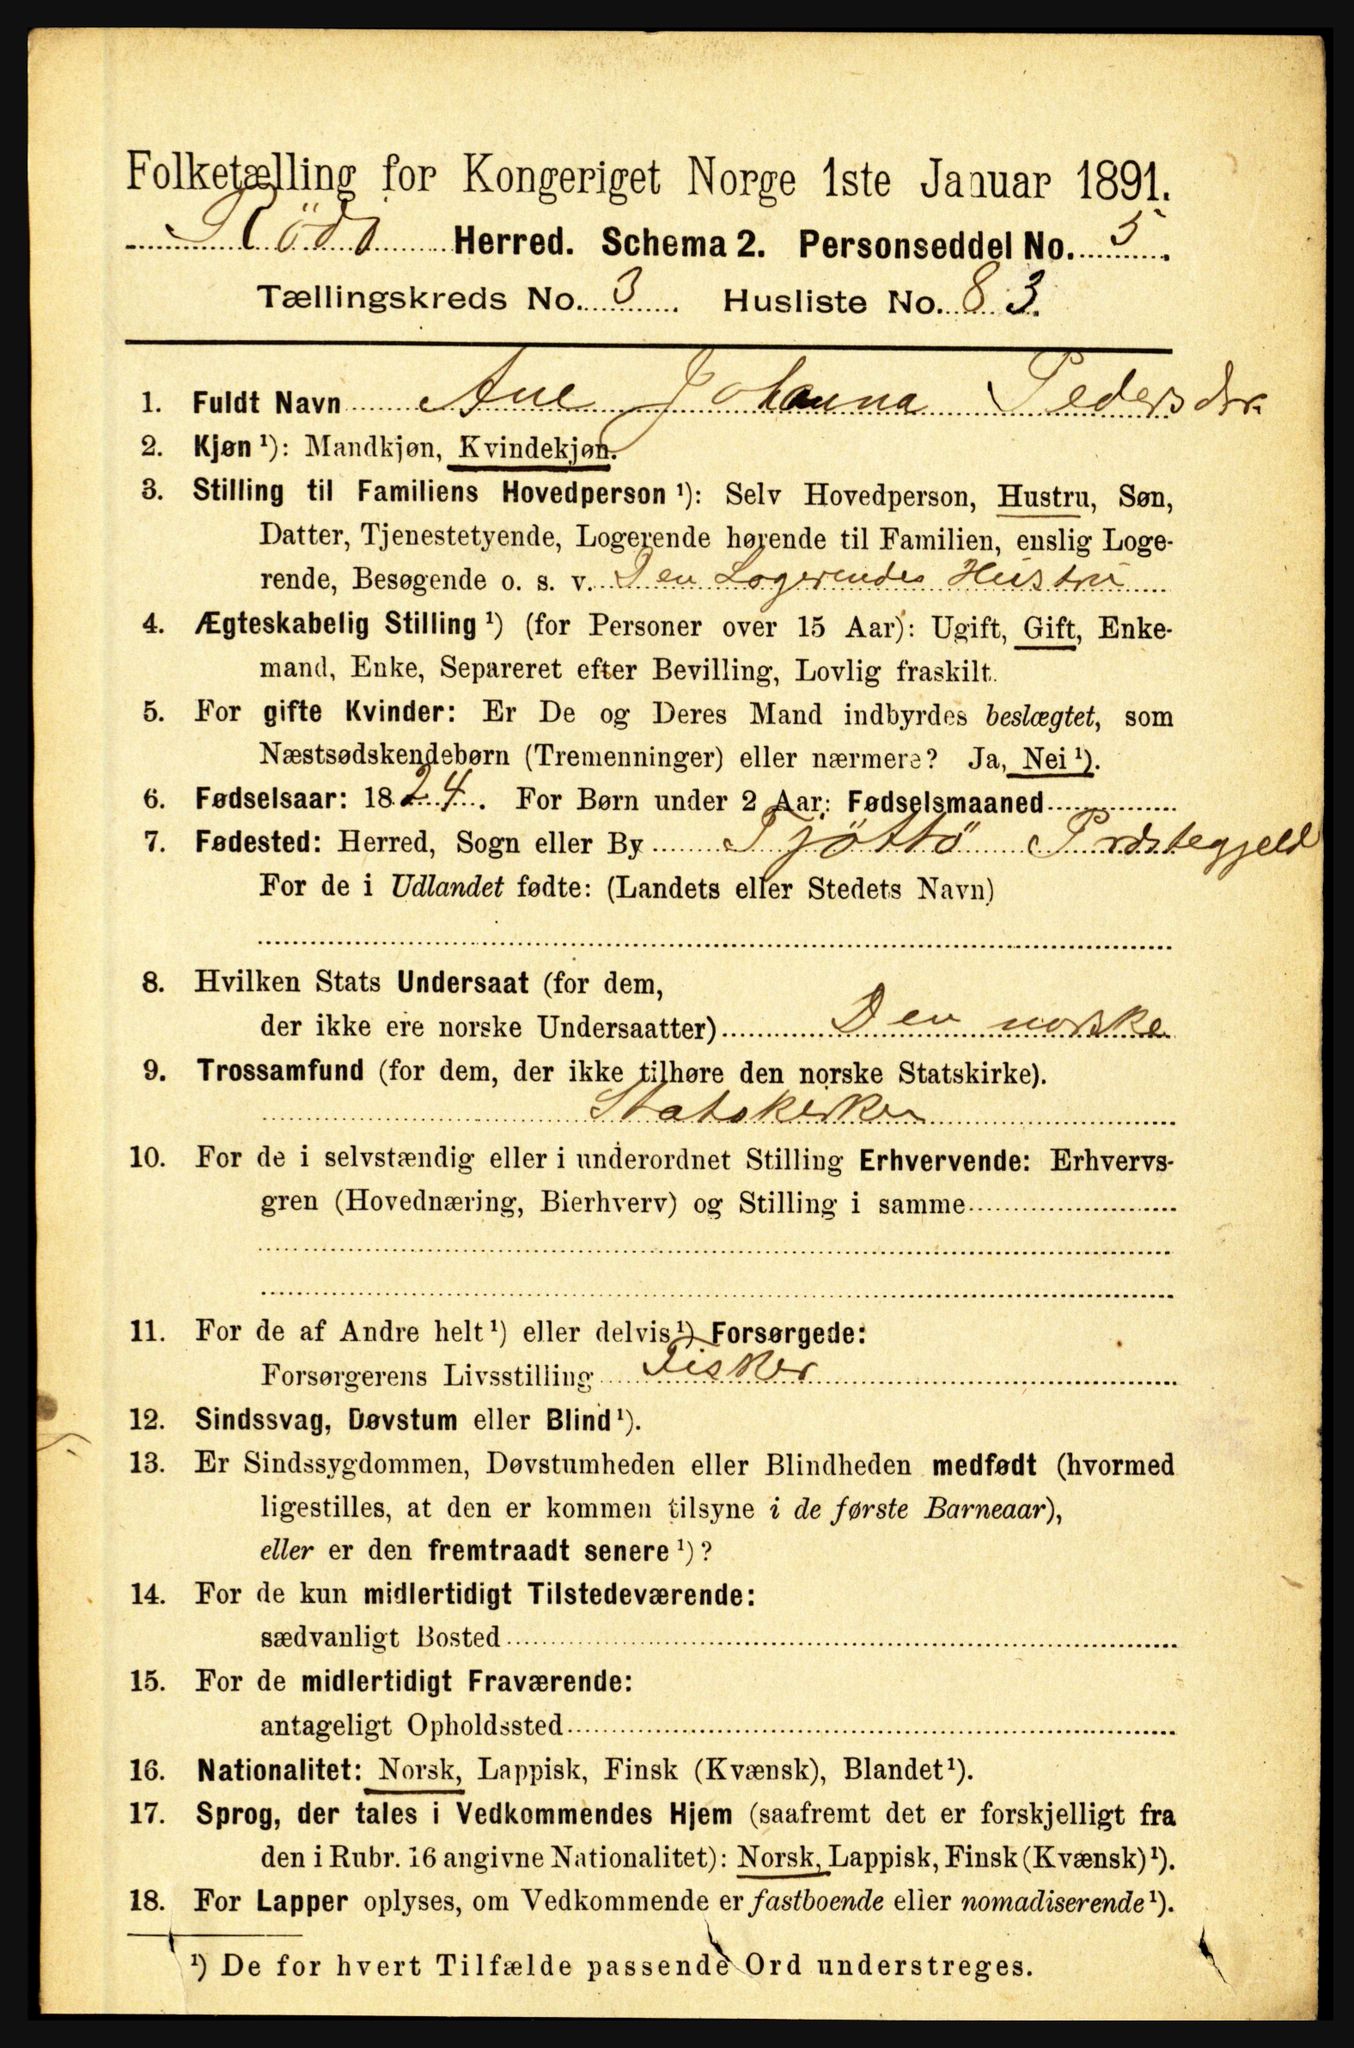 Folketælling for Kongeriget Norge 1ste Januar 1891.
Rödö Herred. Schema 2. Personseddel No. 5.
Tællingskreds No. 3. Husliste No. 83.
1. Fuldt Navn Ane Johanna Pedersdtr.
2. Kjøn ¹): Mandkjøn, Kvindekjøn.
3. Stilling til Familiens Hovedperson ¹): Selv Hovedperson, Hustru, Søn,
Datter, Tjenestetyende, Logerende hørende til Familien, enslig Loge-
rende, Besøgende o. s. v. Den Logerendes Hustru
4. Ægteskabelig Stilling ¹) (for Personer over 15 Aar): Ugift, Gift, Enke-
mand, Enke, Separeret efter Bevilling, Lovlig fraskilt.
5. For gifte Kvinder: Er De og Deres Mand indbyrdes beslægtet, som
Næstsødskendebørn (Tremenninger) eller nærmere? Ja, Nei ¹).
6. Fødselsaar: 1824. For Børn under 2 Aar: Fødselsmaaned
7. Fødested: Herred, Sogn eller By Tjöttö Præstegjeld
For de i Udlandet fødte: (Landets eller Stedets Navn)
8. Hvilken Stats Undersaat (for dem,
der ikke ere norske Undersaatter) Den norske
9. Trossamfund (for dem, der ikke tilhøre den norske Statskirke).
Statskirken
10. For de i selvstændig eller i underordnet Stilling Erhvervende: Erhvervs-
gren (Hovednæring, Bierhverv) og Stilling i samme
11. For de af Andre helt ¹) eller delvis ¹) Forsørgede:
Forsørgerens Livsstilling Fisker
12. Sindssvag, Døvstum eller Blind ¹).
13. Er Sindssygdommen, Døvstumheden eller Blindheden medfødt (hvormed
ligestilles, at den er kommen tilsyne i de første Barneaar),
eller er den fremtraadt senere ¹)?
14. For de kun midlertidigt Tilstedeværende:
sædvanligt Bosted
15. For de midlertidigt Fraværende:
antageligt Opholdssted
16. Nationalitet: Norsk, Lappisk, Finsk (Kvænsk), Blandet ¹).
17. Sprog, der tales i Vedkommendes Hjem (saafremt det er forskjelligt fra
den i Rubr. 16 angivne Nationalitet): Norsk, Lappisk, Finsk (Kvænsk) ¹).
18. For Lapper oplyses, om Vedkommende er fastboende eller nomadiserende ¹).
¹) De for hvert Tilfælde passende Ord understreges.